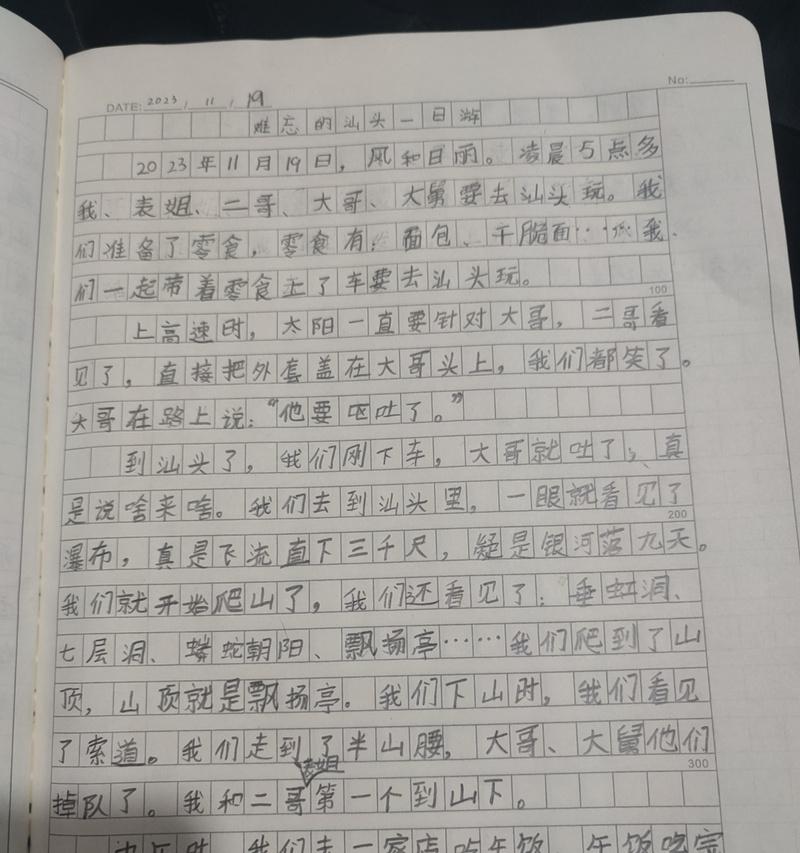 No:
DATE: 2023 / 11 / 19
难忘的汕头一日游
2023年11月19日，风和日丽。凌晨5点多
我、表姐、二哥、大哥、大舅要去汕头玩。我
们准备了零食，零食有：面包、干脆面……我
们一起带着零食上了车要去汕头玩。
100
上高速时，太阳一直要针对大哥，二哥看
见了，直接把外套盖在大哥头上，我们都笑了。
大哥在路上说：“他要呕吐了。”
到汕头了，我们刚下车，大哥就吐了，真
是说啥来啥。我们去到汕头里，一眼就看见了
200
瀑布，真是飞流直下三千尺，疑是银河落九天。
我们就开始爬山了，我们还看见了：垂虹洞、
七层洞、蟒蛇朝阳、飘扬亭……我们爬到了山
顶，山顶就是飘扬亭。我们下山时，我们看见
了索道。我们走到了半山腰，大哥、大舅他们
300
表姐
掉队了。我和二哥第一个到山下。
我们去一家店吃午饭，午饭吃完